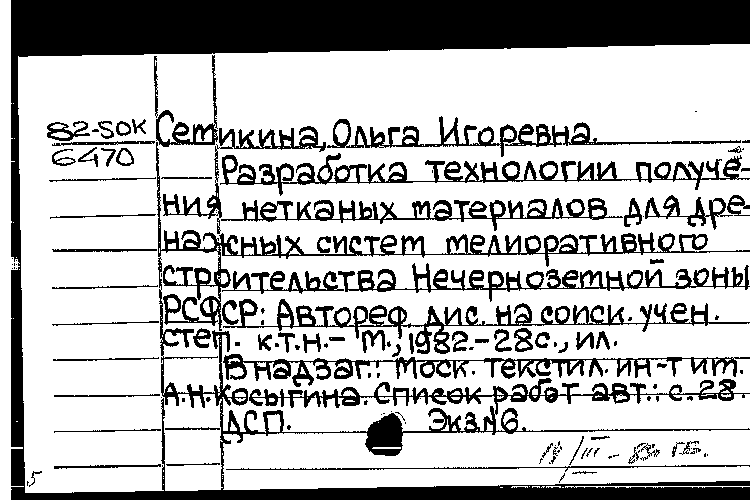 82-50К Сетикина, Ольга Игоревна.
6470
Разработка технологии получе-
ния нетканых материалов для дре-
нажных систем мелиоративного
строительства Нечерноземной зоны
РСФСР: Автореф. дис. на соиск. учен.
степ. к.т.н. - М., 1982. - 28с., ил.
В надзаг.: Моск. текстил. ин-т им.
А.Н.Косыгина. Список работ авт.: с.28.
ДСП. Экз.№6.
5